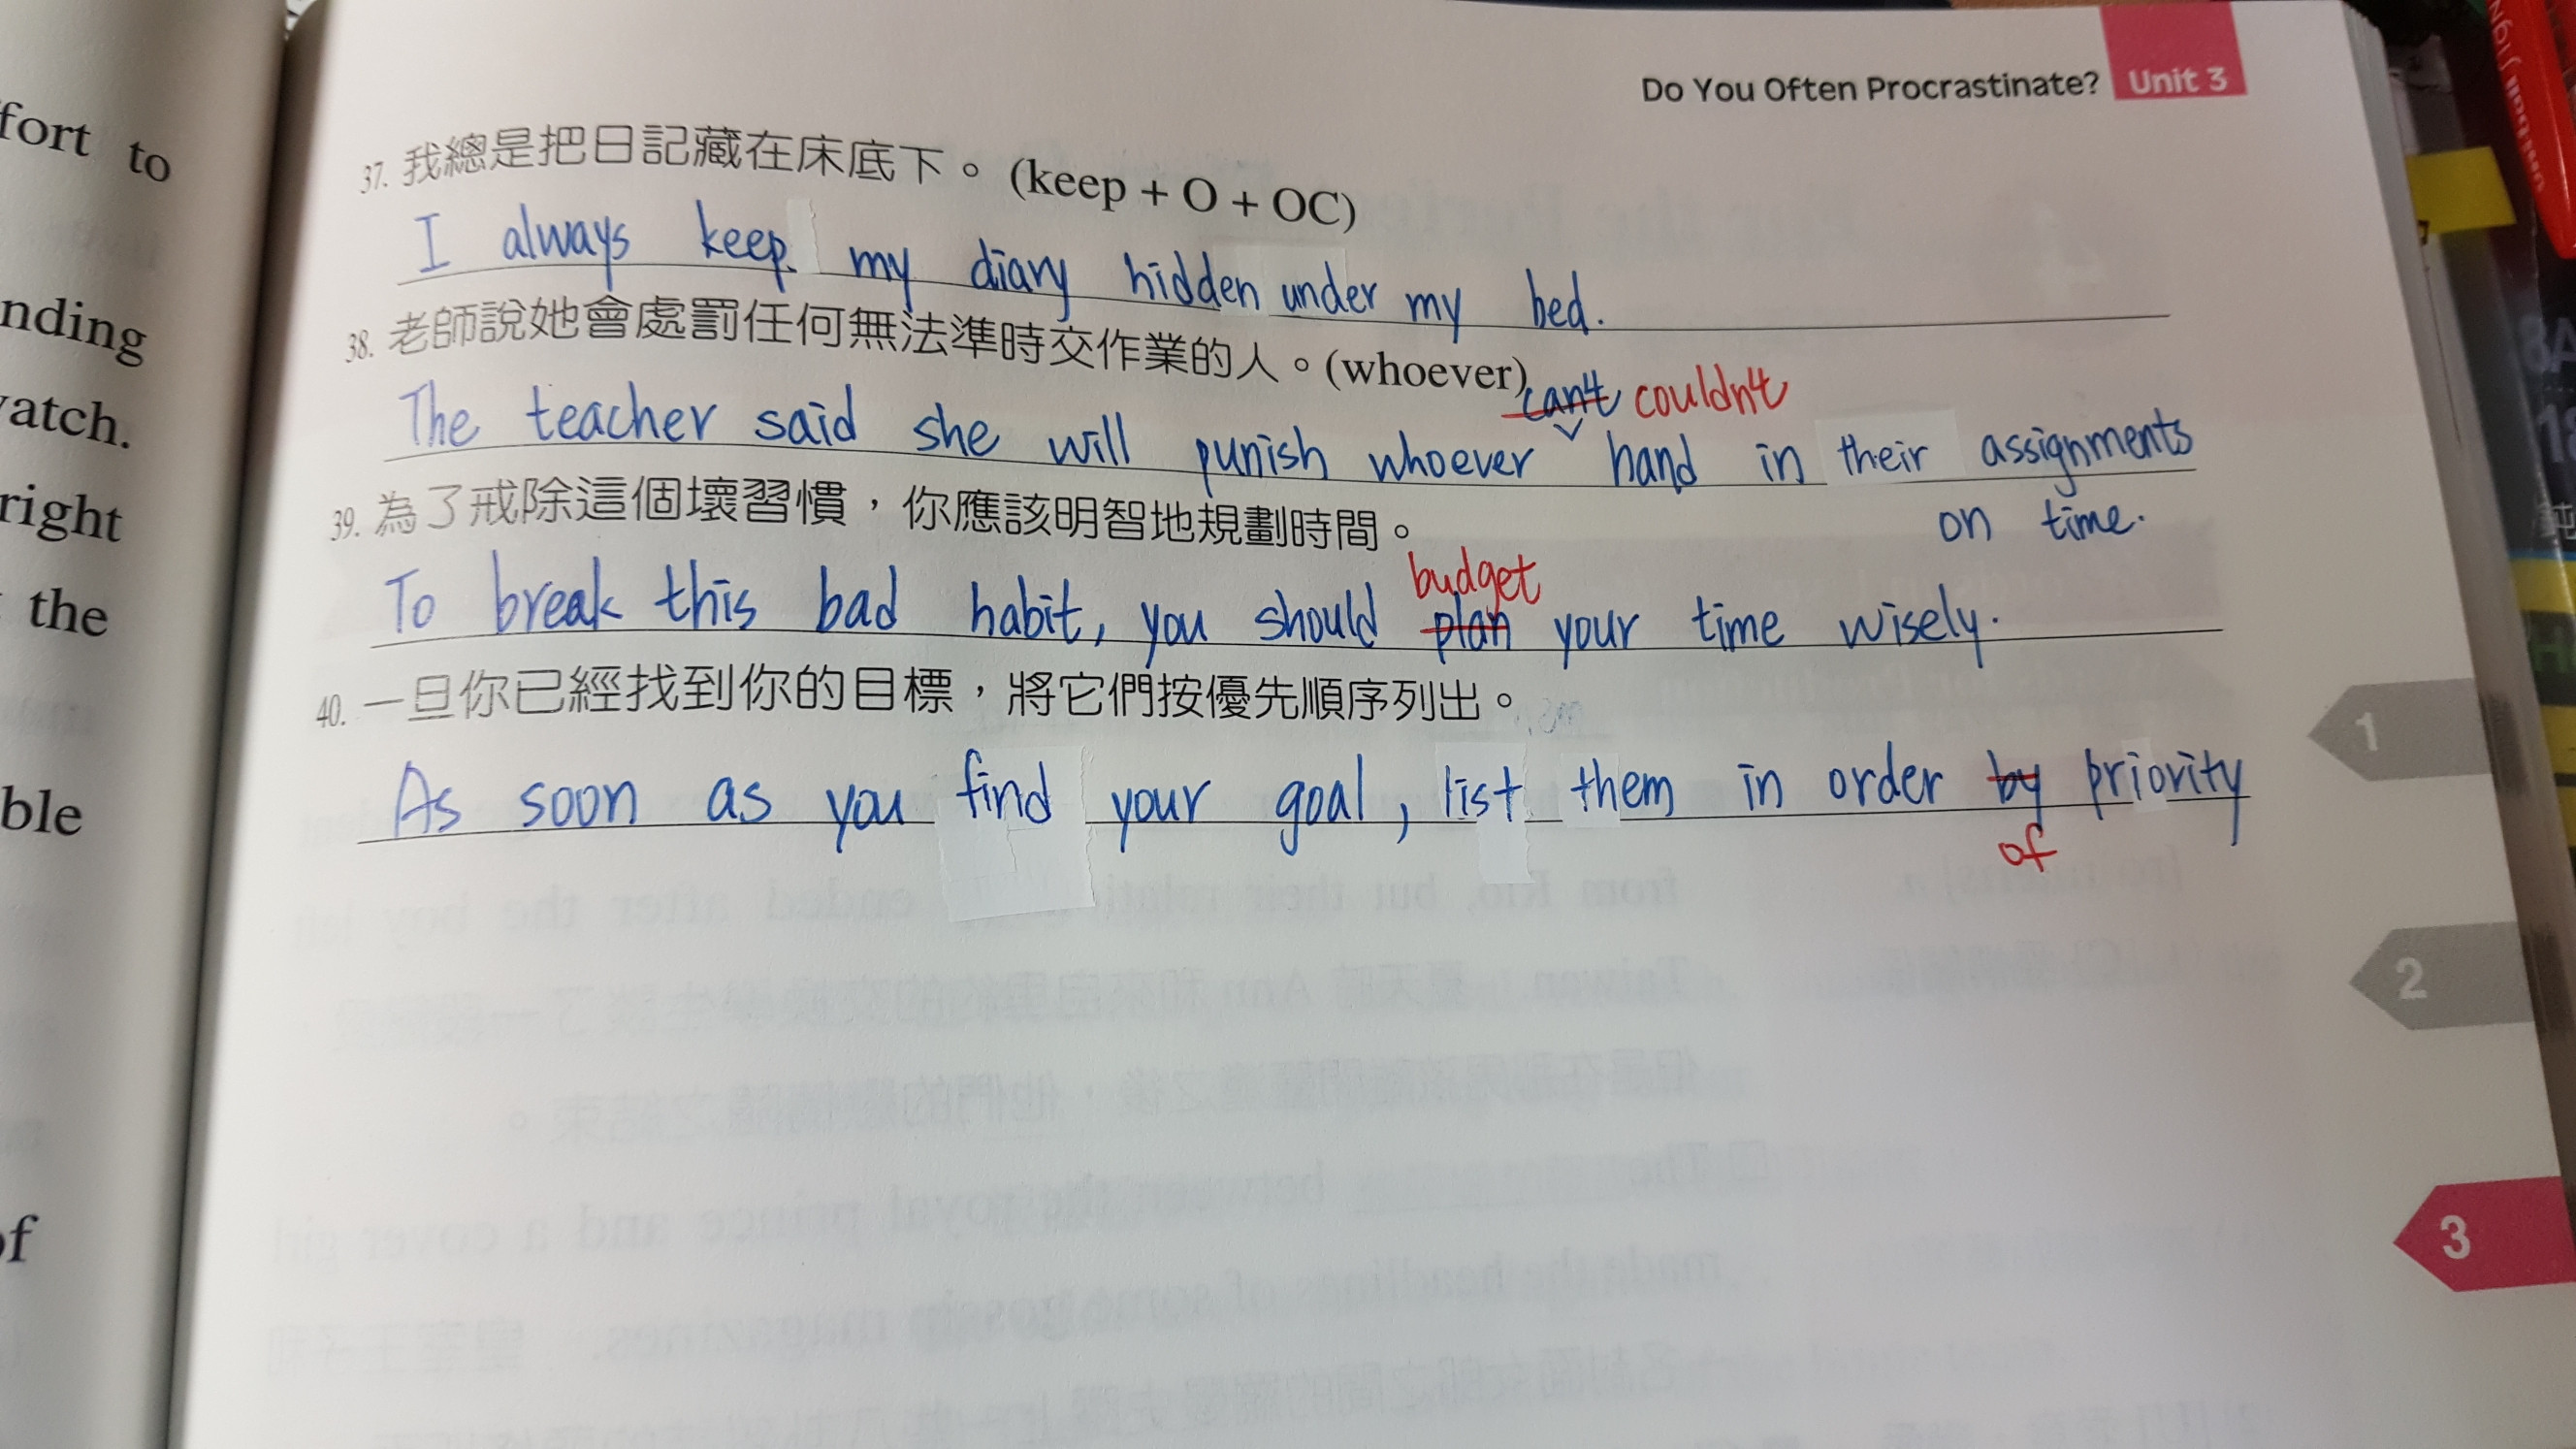 Do You Often Procrastinate? Unit 3
fort to
37. 我總是把日記藏在床底下。(keep + O + OC)
I always keep my diary hidden under my bed.
nding
38. 老師說她會處罰任何無法準時交作業的人。(whoever)
can't couldn't
The teacher said she will punish whoever hand in their assignments
on time.
right
39. 為了戒除這個壞習慣，你應該明智地規劃時間。
budget
To break this bad habit, you should plan your time wisely.
the
40. 一旦你已經找到你的目標，將它們按優先順序列出。
As soon as you find your goal, list them in order by priority
of
ble
1
2
3